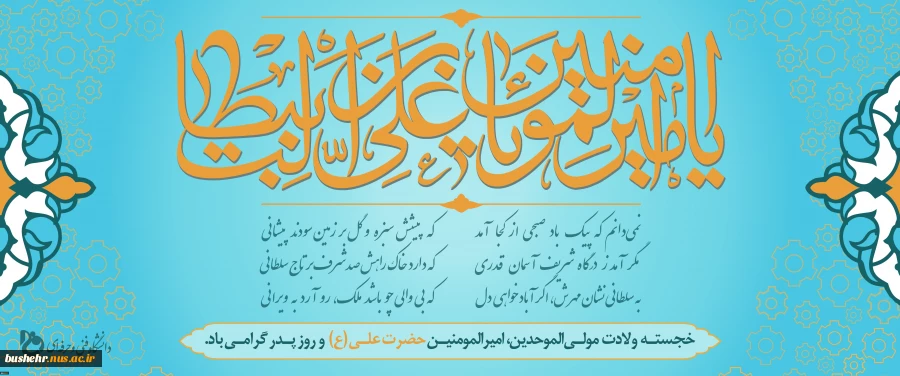 یا امیرالمومنین یا علی بن ابیطالب
نمی‌دانم که پیک باد صبحی از کجا آمد که پیشش سبزه و گل بر زمین سودند پیشانی
مگر آمد ز درگاه شریف آسمان قدری که دارد خاک راهش صد شرف بر تاج سلطانی
به سلطانی نشان مهرش، اگر آباد خواهی دل که بی والی چو باشد ملک، رو آرد به ویرانی
خجسته ولادت مولی‌الموحدین، امیرالمومنین حضرت علی (ع) و روز پدر گرامی باد.
دانشگاه فنی و حرفه‌ای
bushehr.nus.ac.ir